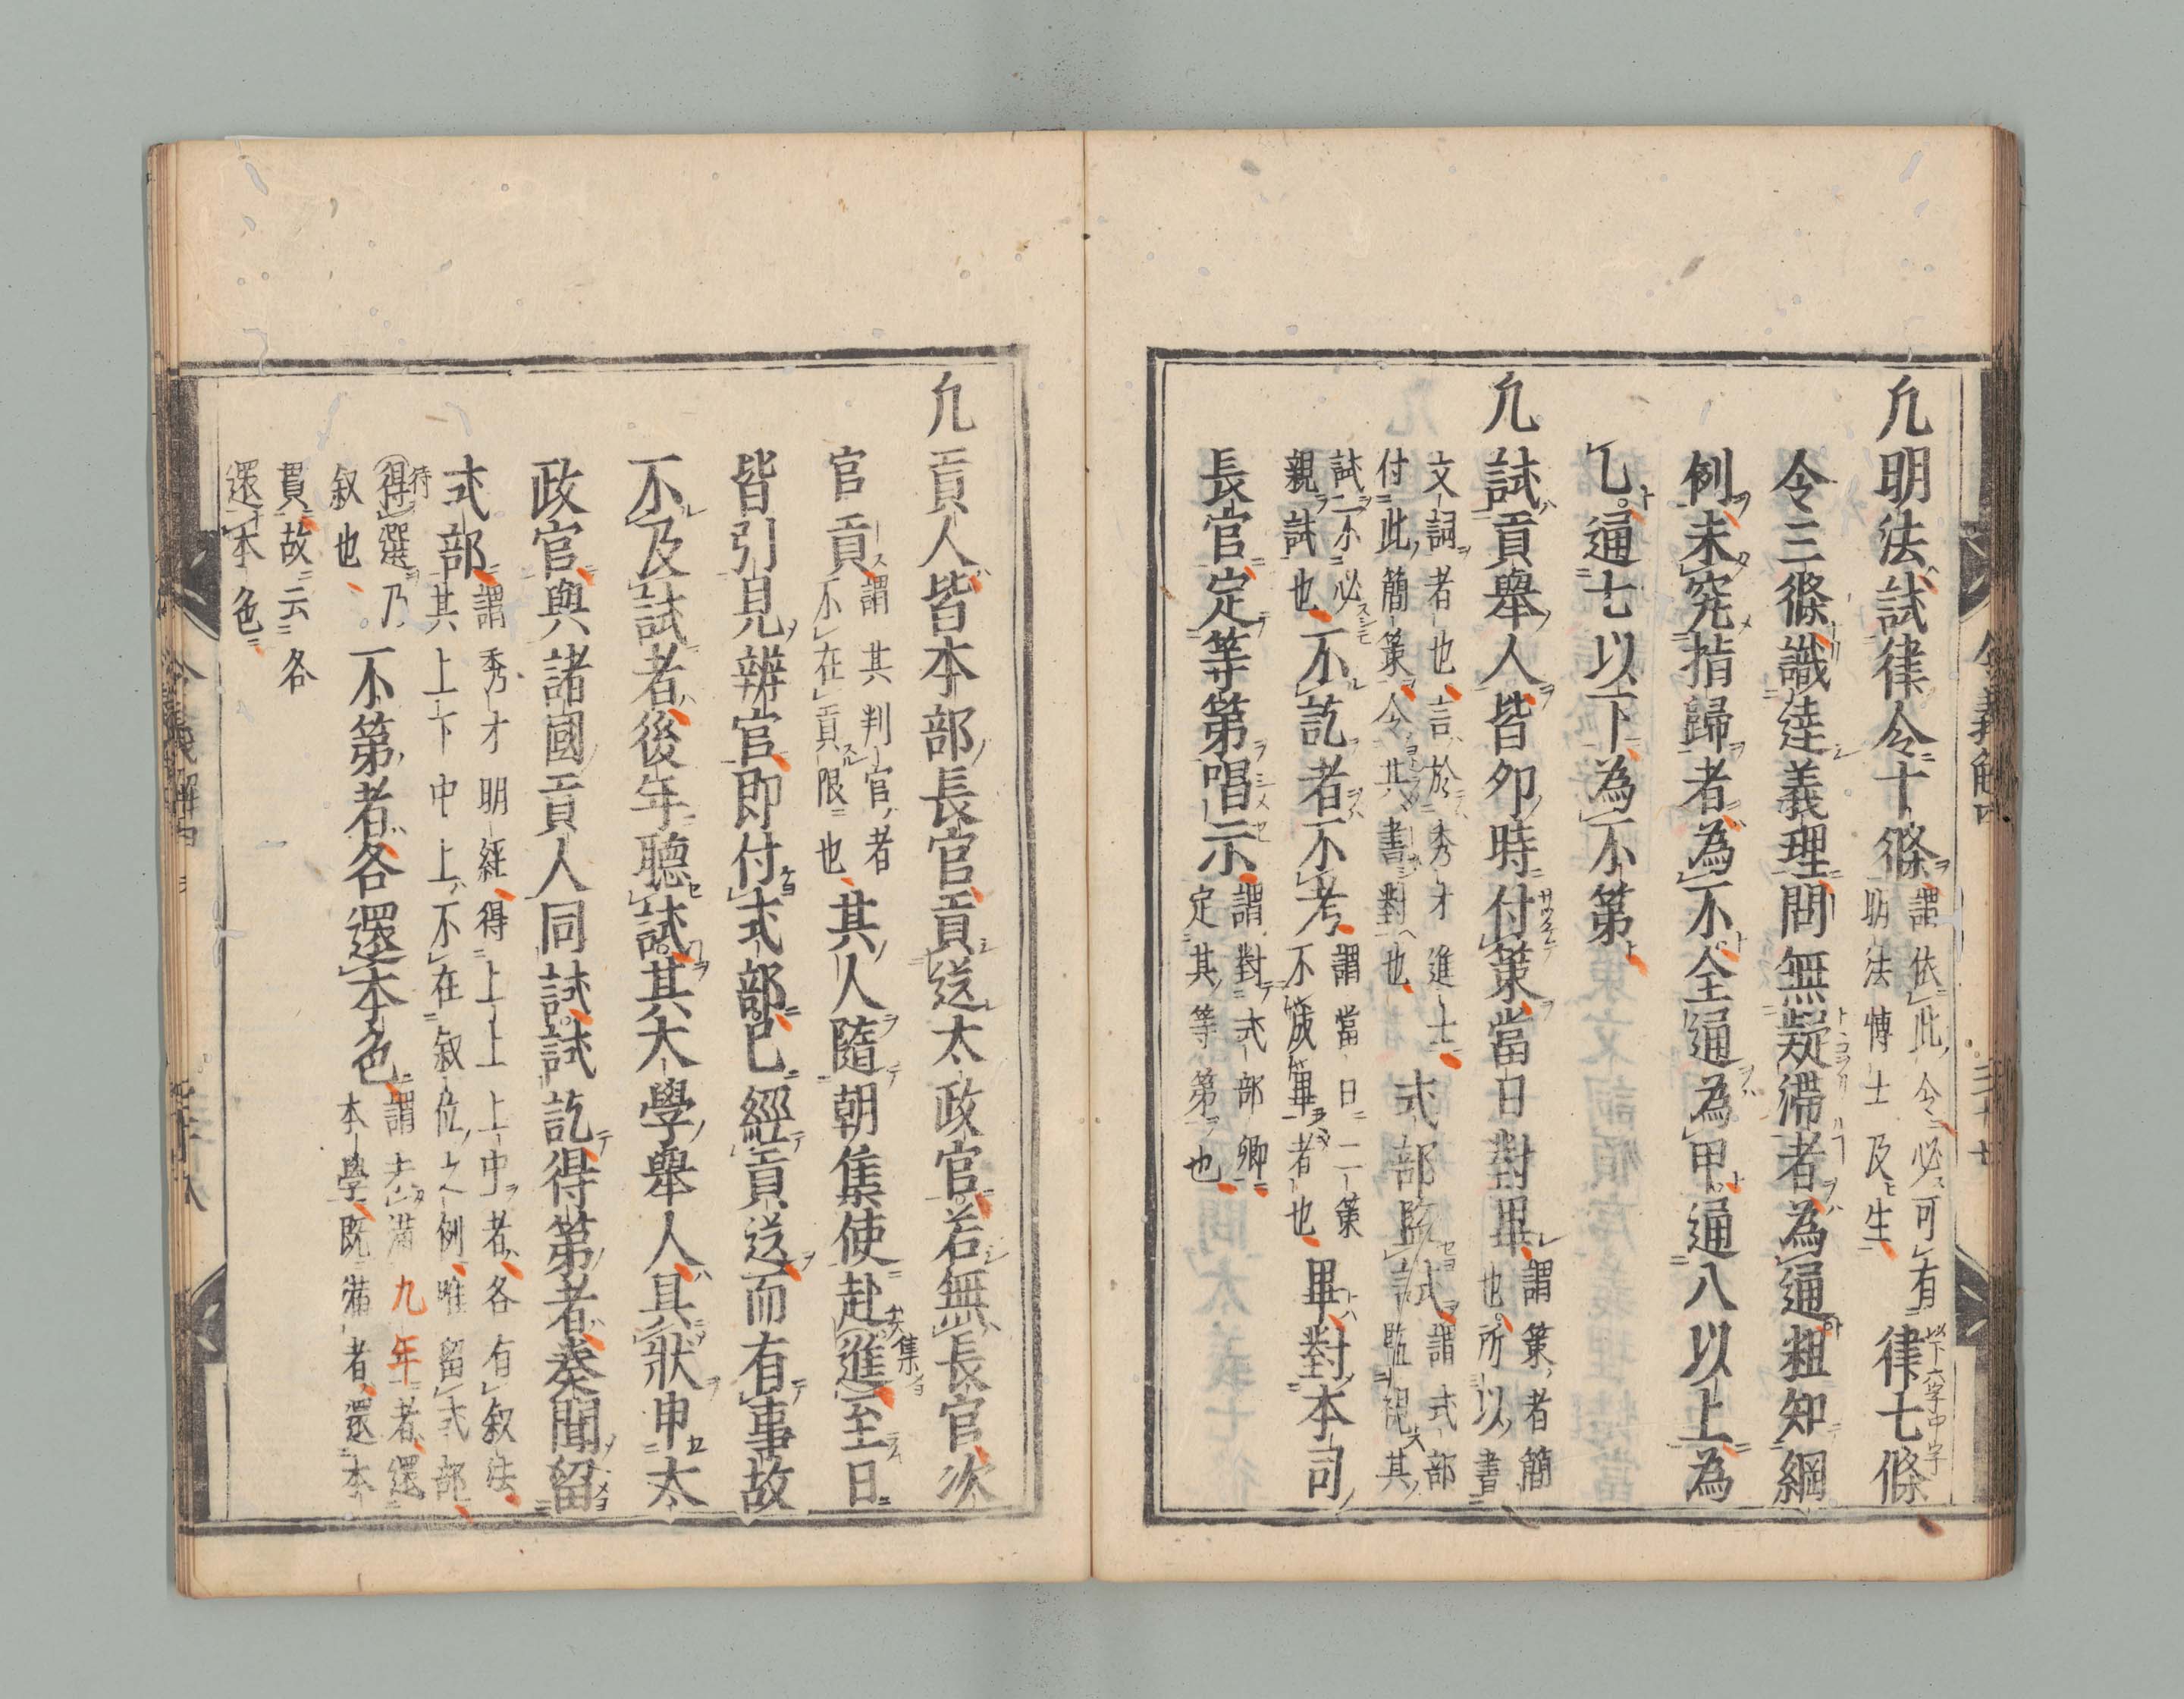 凡明法試律令十條謂依此令必可有明法博士及生律七條
令三條識達義理問無疑滯者為通粗知綱
例未究指歸者為不全通為甲通八以上為
乙通七以下為不第
凡試貢擧人皆卯時付策當日對畢謂策者簡也所以書
文詞者也言於秀才進士付此簡策令其書對也式部監試謂式部監視其
試不必親試也不訖者不考謂當日一策不成畢者也畢對本司
長官定等第唱示謂對式部卿定其等第也
凡貢人皆本部長官貢送太政官若無長官次
官貢謂其判官者不在貢限也其人隨朝集使赴進至日
皆引見辨官即付式部已經貢送而有事故
不及試者後年聽試其大學擧人具狀申太
政官與諸國貢人同試試訖得第者奏聞留
式部謂秀才明經得上上上中者各有叙法其上下中上不在叙位之例唯留式部
得選乃叙也不第者各還本色謂滿九年者還本學既滿者還本
貫故云各還本色
令義解四
以下六字中字
集
待